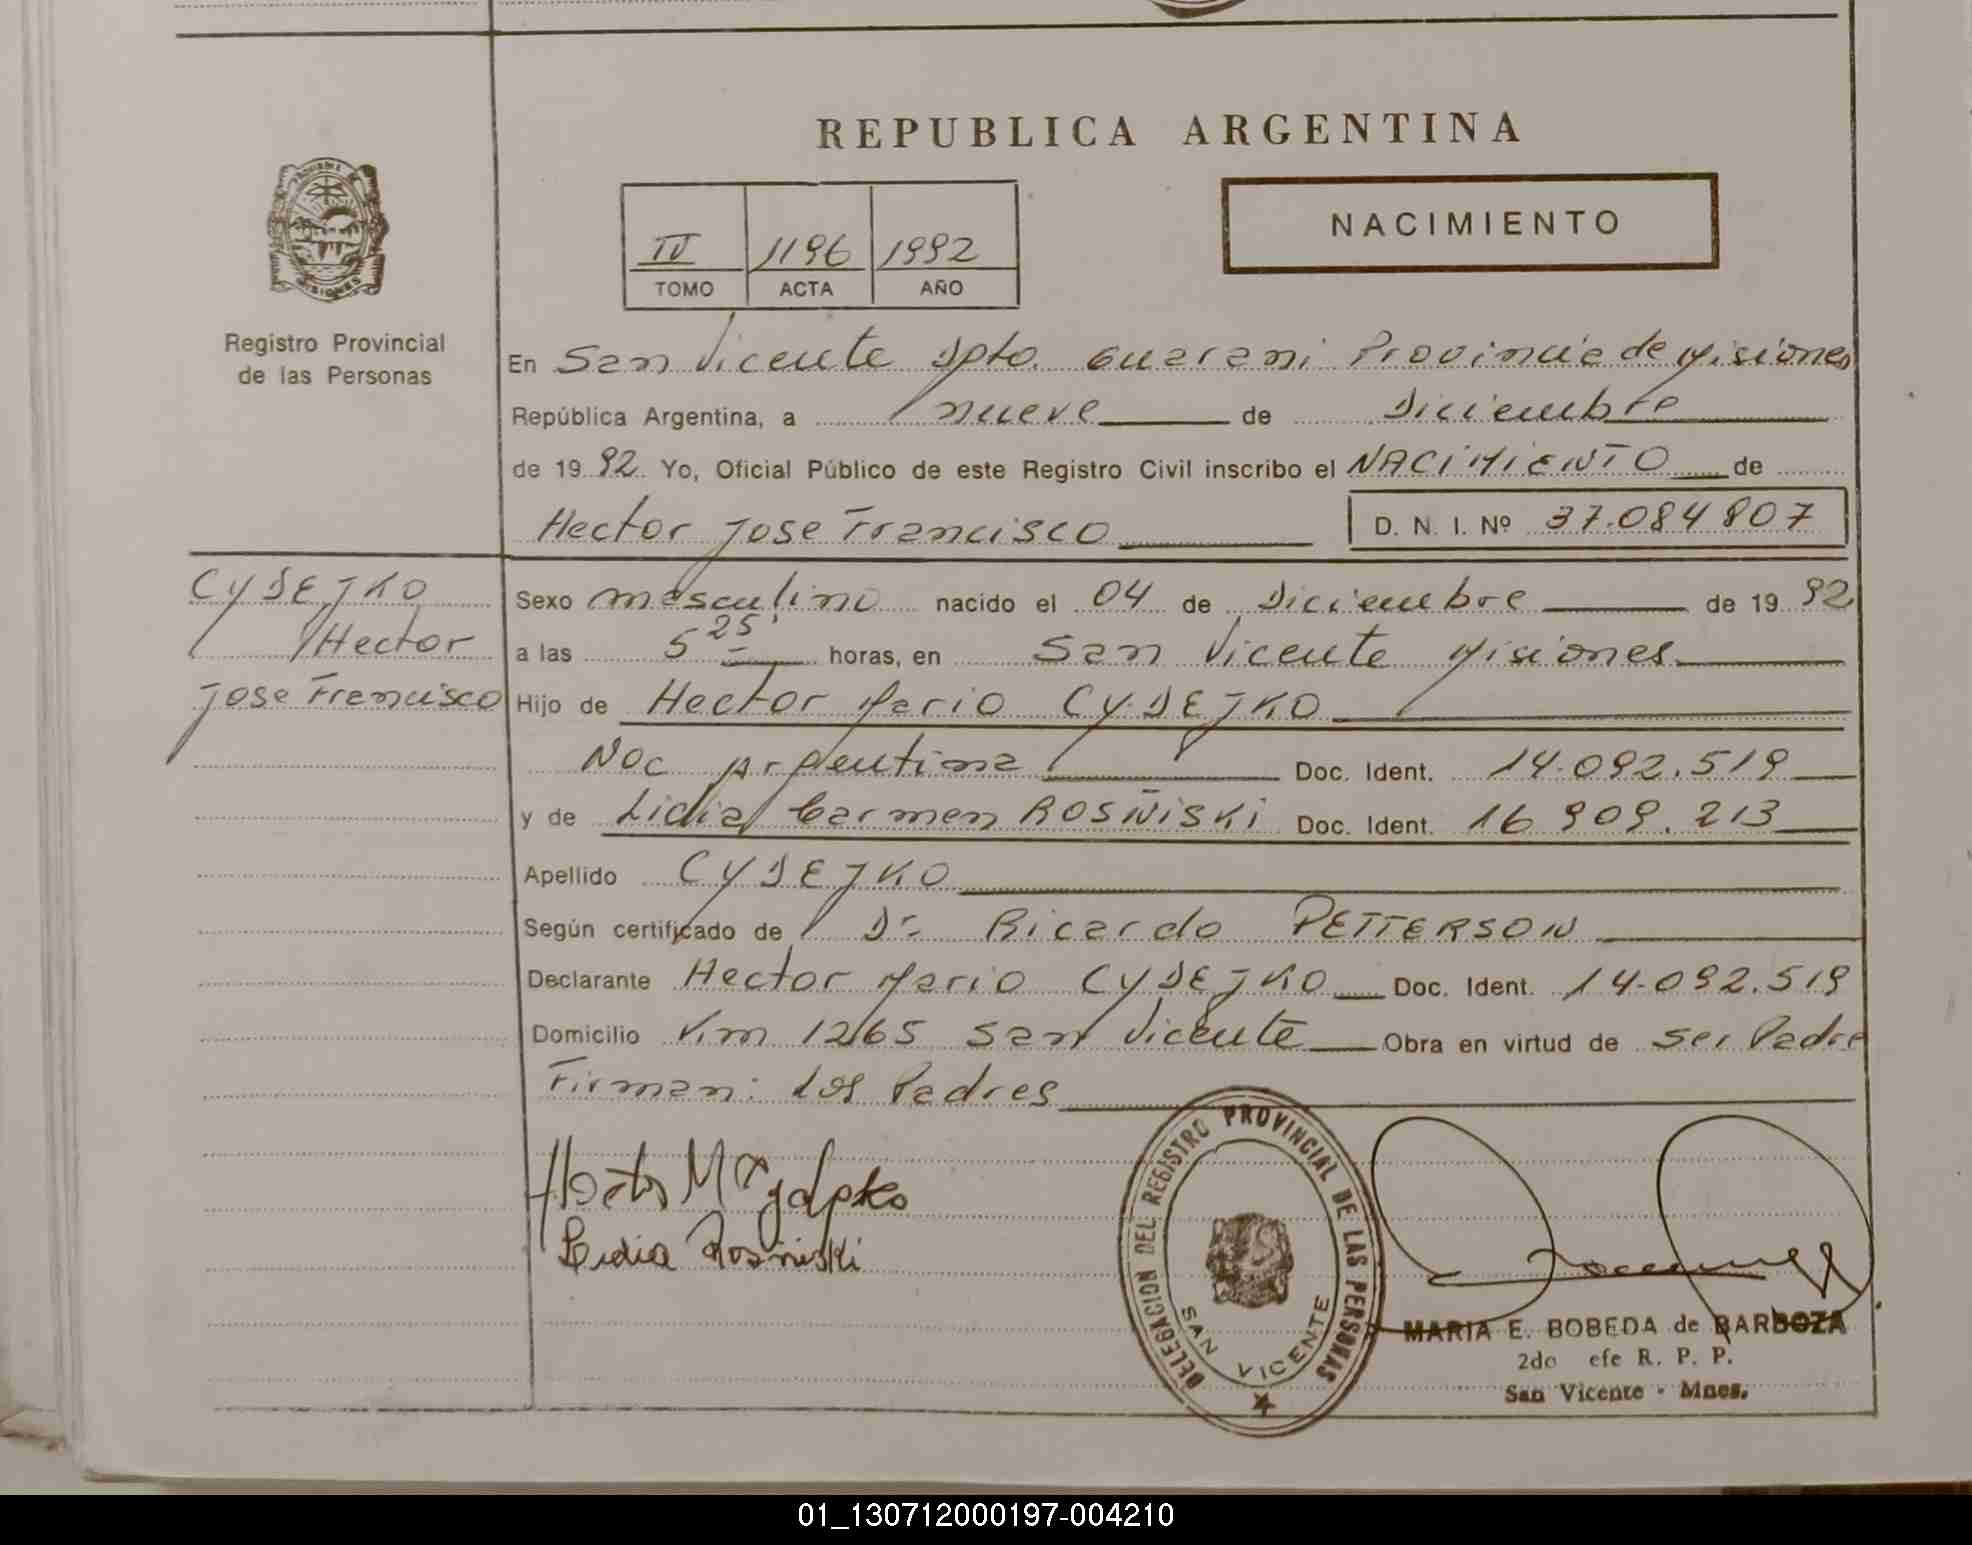 REPUBLICA ARGENTINA
IV 1196 1992
TOMO ACTA AÑO
NACIMIENTO
MISIONES
Registro Provincial
de las Personas
En San Vicente Dpto. Guarani Provincia de Misiones
República Argentina, a nueve de Diciembre
de 1992 Yo, Oficial Público de este Registro Civil inscribo el NACIMIENTO de
Hector Jose Francisco D. N. I. Nº 37.084807
CYDEJKO
Hector
Jose Francisco
Sexo masculino nacido el 04 de Diciembre de 1992
a las 5 25 horas, en San Vicente Misiones
Hijo de Hector Mario CYDEJKO
Nac Argentina Doc. Ident. 14.092.519
y de Lidia Carmen ROSIÑSKI Doc. Ident. 16 909.213
Apellido CYDEJKO
Según certificado de Dr. Ricardo PETTERSON
Declarante Hector Mario CYDEJKO Doc. Ident. 14.092.519
Domicilio Km 1265 San Vicente Obra en virtud de ser Padre
Firman: Los Padres
Lidia Rosiñski
DELEGACION DEL REGISTRO PROVINCIAL DE LAS PERSONAS
SAN VICENTE
MARIA E. BOBEDA de BARBOZA
2do efe R. P. P.
San Vicente - Mnes.
01_130712000197-004210